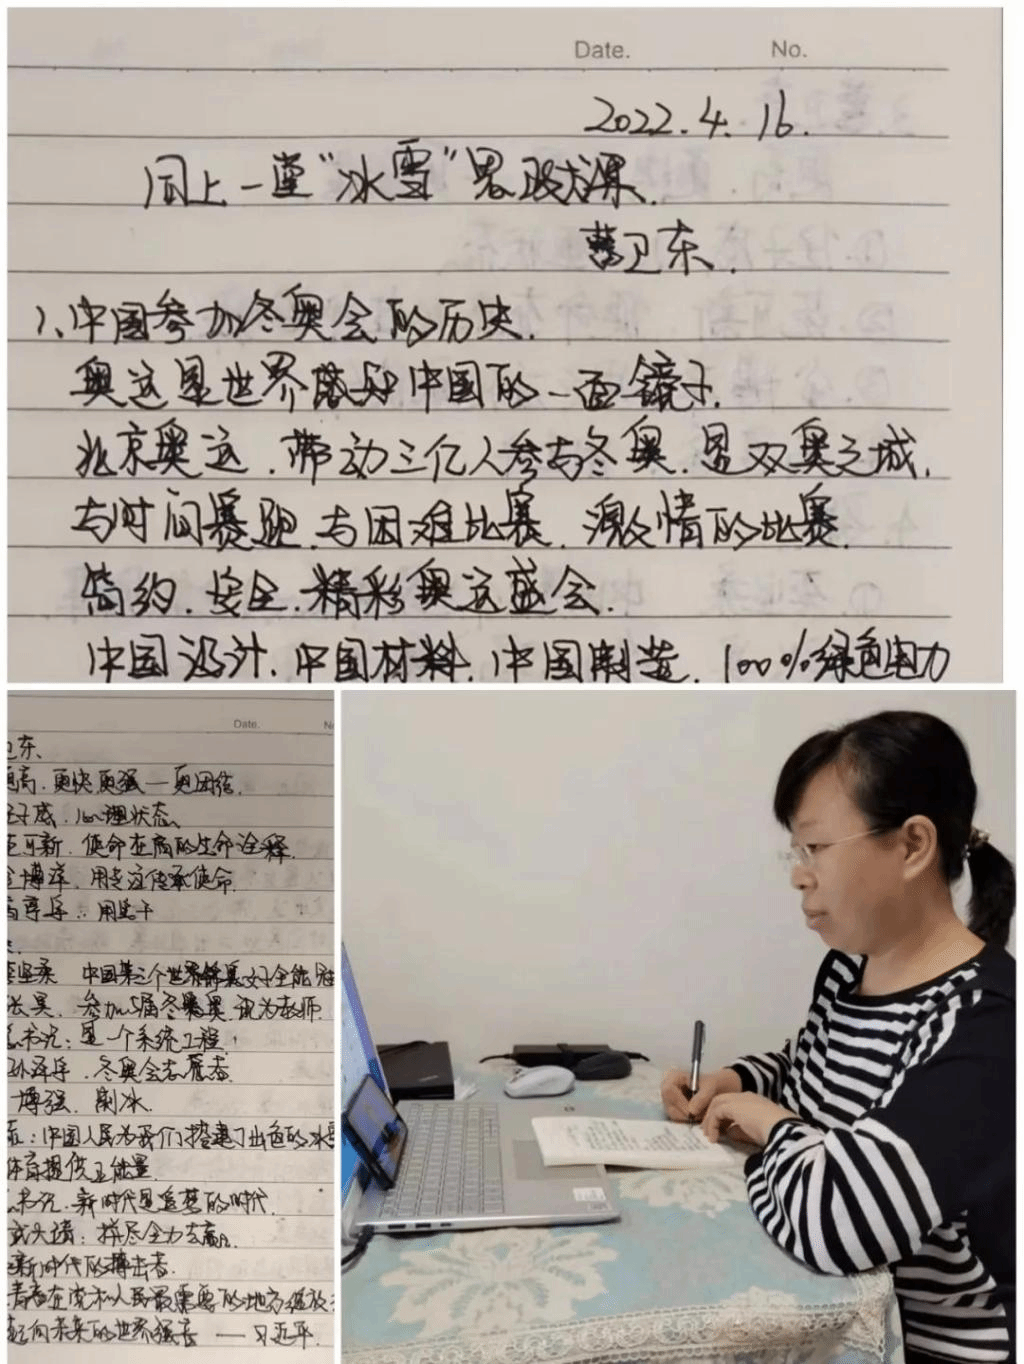 Date. No.
2022.4.16.
同上一堂"冰雪"思政大课.
曹卫东.
1、中国参加冬奥会的历史.
奥运是世界感知中国的一面镜子.
北京奥运.带动三亿人参与冬奥.是双奥之城.
与时间赛跑.与困难比赛.激情的比赛.
简约.安全.精彩奥运盛会.
中国设计.中国材料.中国制造.100%绿色电力
Date.
卫东、
更高.更快更强一更团结.
心理状态、
可新.使命在肩的生命诠释.
博洋.用专注传承使命.
亭序:用实干
坚柔 中国第三个世界锦赛女子全能冠
昊.参加5届冬奥.现为教师.
书记:是一个系统工程.
泽宇.冬奥会志愿者.
博强.制冰.
:中国人民为我们搭建了出色的冰雪
体育提供正能量.
书记.新时代是追梦的时代.
大靖:拼尽全力去赢.
新时代的搏击者.
青春在党和人民最需要的地方绽放
起向未来的世界强音 ——习近平.